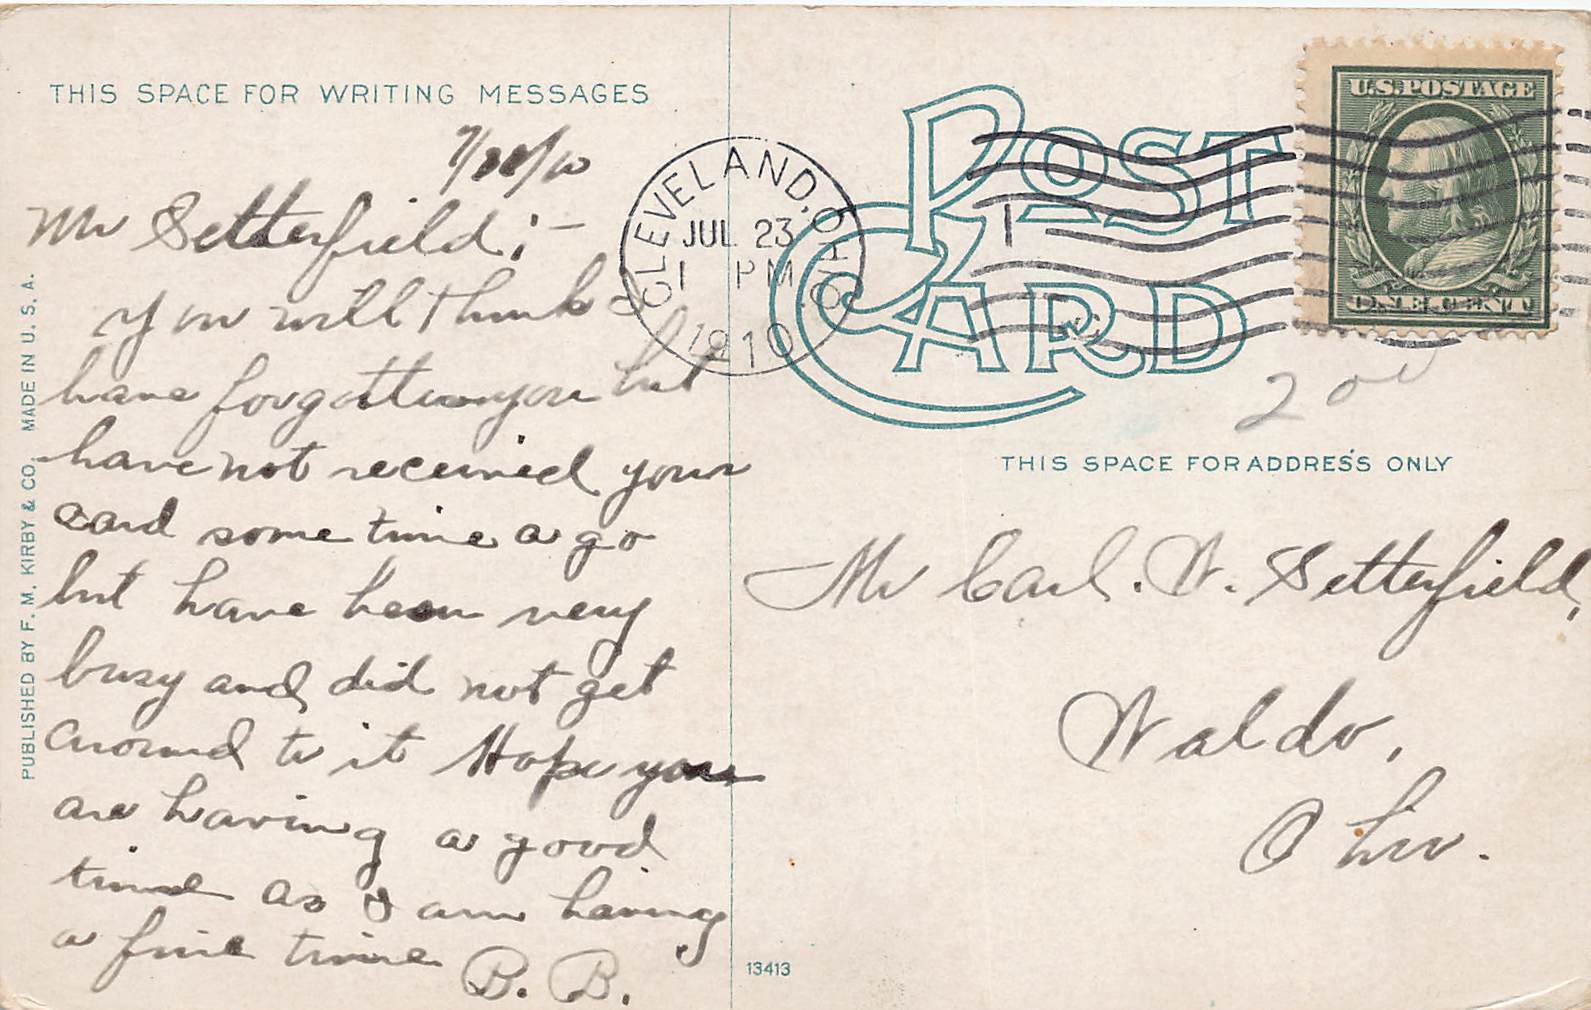 THIS SPACE FOR WRITING MESSAGES
Mr Setterfield; —
you will think I
have forgotten you but
have not received your
card some time a go
but have been very
busy and did not get
around to it Hope you
are having a good
time as I am having
a fine time
B. B.
PUBLISHED BY F. M. KIRBY & CO. MADE IN U. S. A.
CLEVELAND, OHIO
JUL 23
1 PM
1910
POST
CARD
U.S. POSTAGE
ONE CENT
1
200
THIS SPACE FOR ADDRESS ONLY
Mr Carl. W. Setterfield,
Waldo,
Ohio.
13413